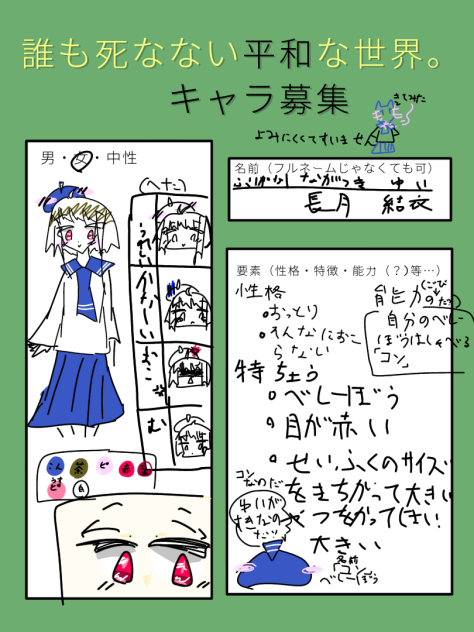 誰も死なない平和な世界。
キャラ募集
きてみた
よみにくくてすいません
男・女・中性
(へた)
うれしい
かなしい
おこ
む
こん
茶
ピ
赤
うすピ
白
名前（フルネームじゃなくても可）
ふりがな ながつき ゆい
長月 結衣
要素（性格・特徴・能力（？）等…）
性格
おっとり
そんなにおこ
らない
能力
自分のベレー
ぼうはしゃべる
「コン」
特ちょう
ベレーぼう
目が赤い
せいふくのサイズ
をまちがって大きい
やつをかってしまい
大きい
ゆいが
すきなの
だッ
名前
「コン」
ベレーぼう